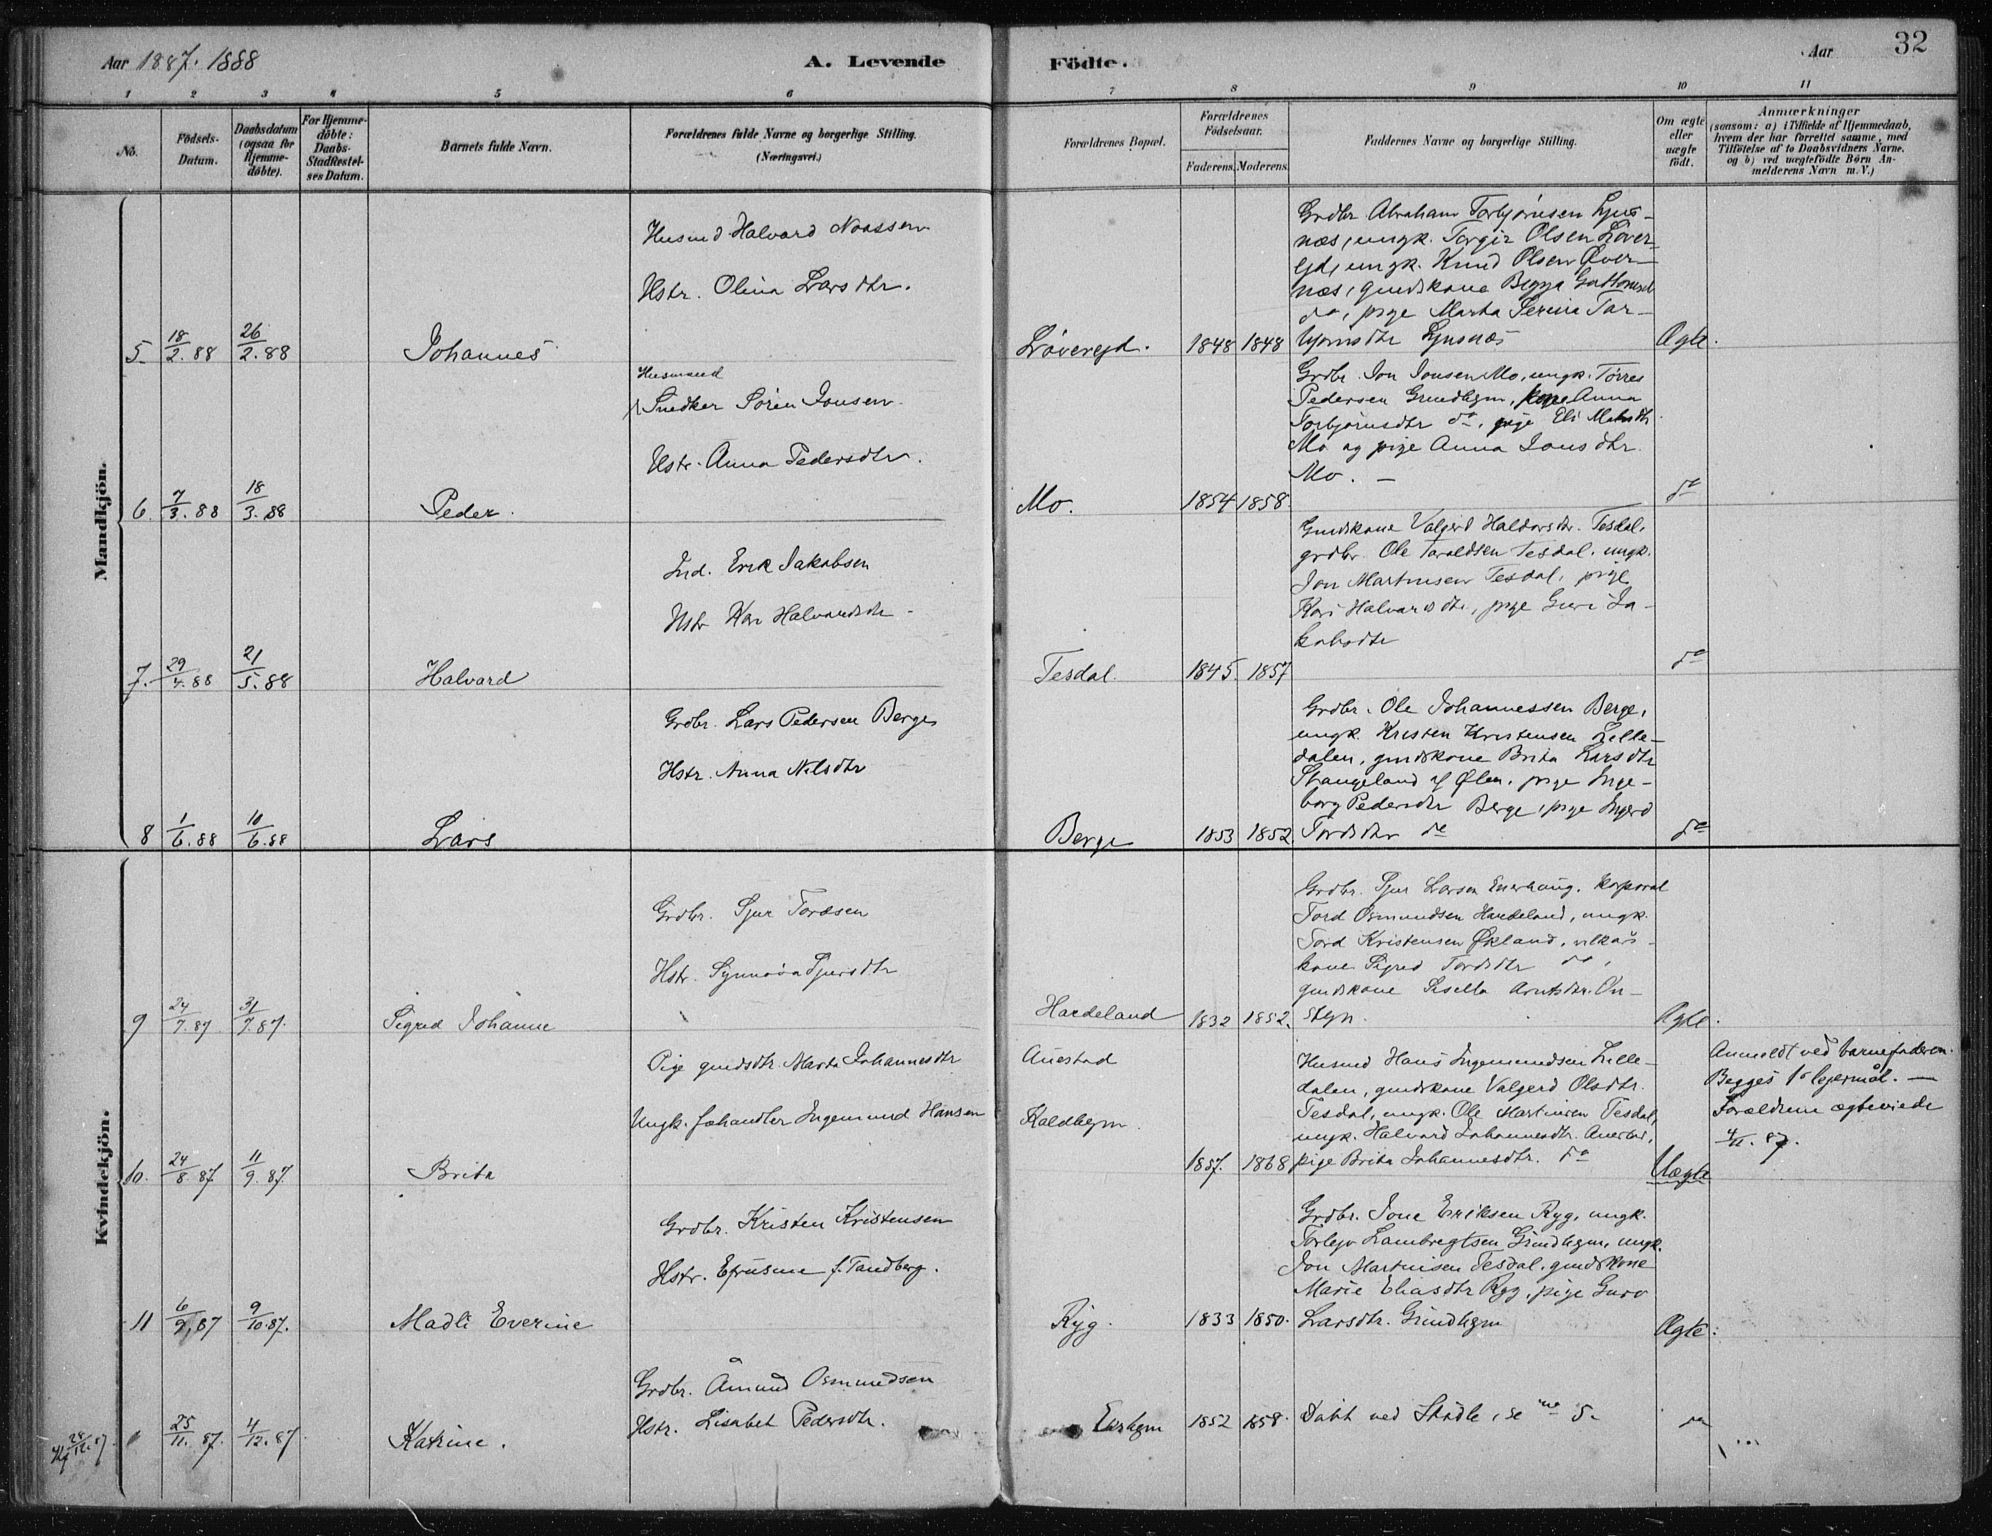 Aar 1887. 1888
A. Levende
Födte.
Aar
32
1 2 3 4 5 6 7 8 9 10 11
No.
Födsels-
Datum.
Daabsdatum
(ogsaa for
Hjemme-
døbte).
For Hjemme-
døbte:
Daabs-
Stadfæstel-
ses Datum.
Barnets fulde Navn.
Forældrenes fulde Navne og borgerlige Stilling.
(Næringsvei.)
Forældrenes Bopæl.
Forældrenes
Födselsaar.
Faderens.
Moderens.
Faddernes Navne og borgerlige Stilling.
Om ægte
eller
uægte
födt.
Anmærkninger
(saasom: a) i Tilfælde af Hjemmedaab,
hvem der har forrettet samme, med
Tilföielse af to Daabsvidners Navne.
og b) ved uægtefödte Börn An-
melderens Navn m. V.)
Mandkjön.
5. 18/2.88 26/2.88 Johannes
Husmd Halvard Noassen
Hstr. Olina Larsdtr.
Løveregd. 1848 1848
Grdbr. Abraham Torbjørnsen Ljus-
næs, ungk. Torgir Olsen Løver-
ejd, ungk. Knud Olsen Øver-
næs, gmdskone
do, pige Marta Serina Tor-
bjørnsdtr Ljusnæs
Ægte.
6. 7/3.88 18/3.88 Peder.
Husmand
Snedker Søren Jonsen
Hstr. Anna Pedersdtr.
Mo. 1854 1858.
Grdbr. Jon Jonsen Mo, ungk. Tørres
Pedersen Grindhejm, kone Anna
Torbjørnsdtr do, pige Eli Matsdtr
Mo og pige Anna Jonsdtr.
Mo. —
do
7. 29/4.88 21/5.88 Halvard
Ind. Erik Jakobsen
Hstr Kari Halvardsdtr
Tesdal. 1845. 1857
Gmdskone Valgerd Haldorsdtr. Tesdal,
grdbr. Ole Taraldsen Tesdal, ungk.
Jon Martinsen Tesdal, pige
Kari Halvardsdtr, pige Guri Ja-
kobsdtr
do
8 1/6.88 10/6.88 Lars
Grdbr. Lars Pedersen Berge
Hstr. Anna Nilsdtr
Berge 1853 1852.
Grdbr. Ole Johannessen Berge,
ungk. Kristen Kristensen Lille-
dalen, gmdskone Brita Larsdtr
Stangeland af Ølen, pige Inge-
borg Pedersdtr Berge, pige Ingerd
Tordsdtr do
do
Kvindekjön.
9 24/7.87 31/7.87. Sigred Johanne
Grdbr. Sjur Tordsen
Hstr. Synnøva Sjursdtr
Hardeland 1832 1852.
Grdbr. Sjur Larsen Enerhaug, korporal
Tord Osmundsen Hardeland, ungk.
Tord Kristensen Økland, vilkårs-
kone Sigred Tordsdtr do,
gmdskone Sisella Arntsdtr. Øn-
stejn.
Ægte.
10. 24/8.87 11/9.87. Brita
Pige gmdsdtr. Marta Johannesdtr
Ungk. fæhandler Ingemund Hansen
Auestad
Kaldhejm.
1857. 1868
Husmd Hans Ingemundsen Lille-
dalen, gmdskone Valgerd Olsdtr.
Tesdal, ungk. Ole Martinsen Tesdal,
ungk. Halvard Johannesdtr. Auestad,
pige Brita Johannesdtr. do
Uægte
Anmeldt ved barnefaderen.
Begges 1ste lejermål. —
Forældrene ægteviede
4/11.87.
11 6/9.87 9/10.87. Madli Everine
Grdbr. Kristen Kristensen
Hstr. Efrusine f. Tandberg.
Ryg. 1833 1850.
Grdbr. Jone Eriksen Ryg, ungk.
Torlejv Lambregtsen Grindhejm, ungk.
Jon Martinsen Tesdal, gmdskone
Marie Eliasdtr Ryg, pige Guro
Larsdtr. Grindhejm
Ægte.
25/11.87. 4/12.87 Katrine.
Grdbr. Åmund Osmundsen
Hstr. Lisabet Pedersdtr.
1852 1858.
Døbt ved Stødle, se no 5.